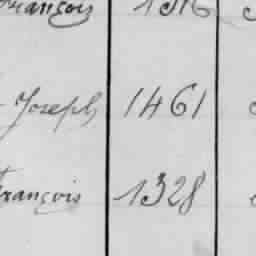 François 1316
Joseph 1461
François 1328